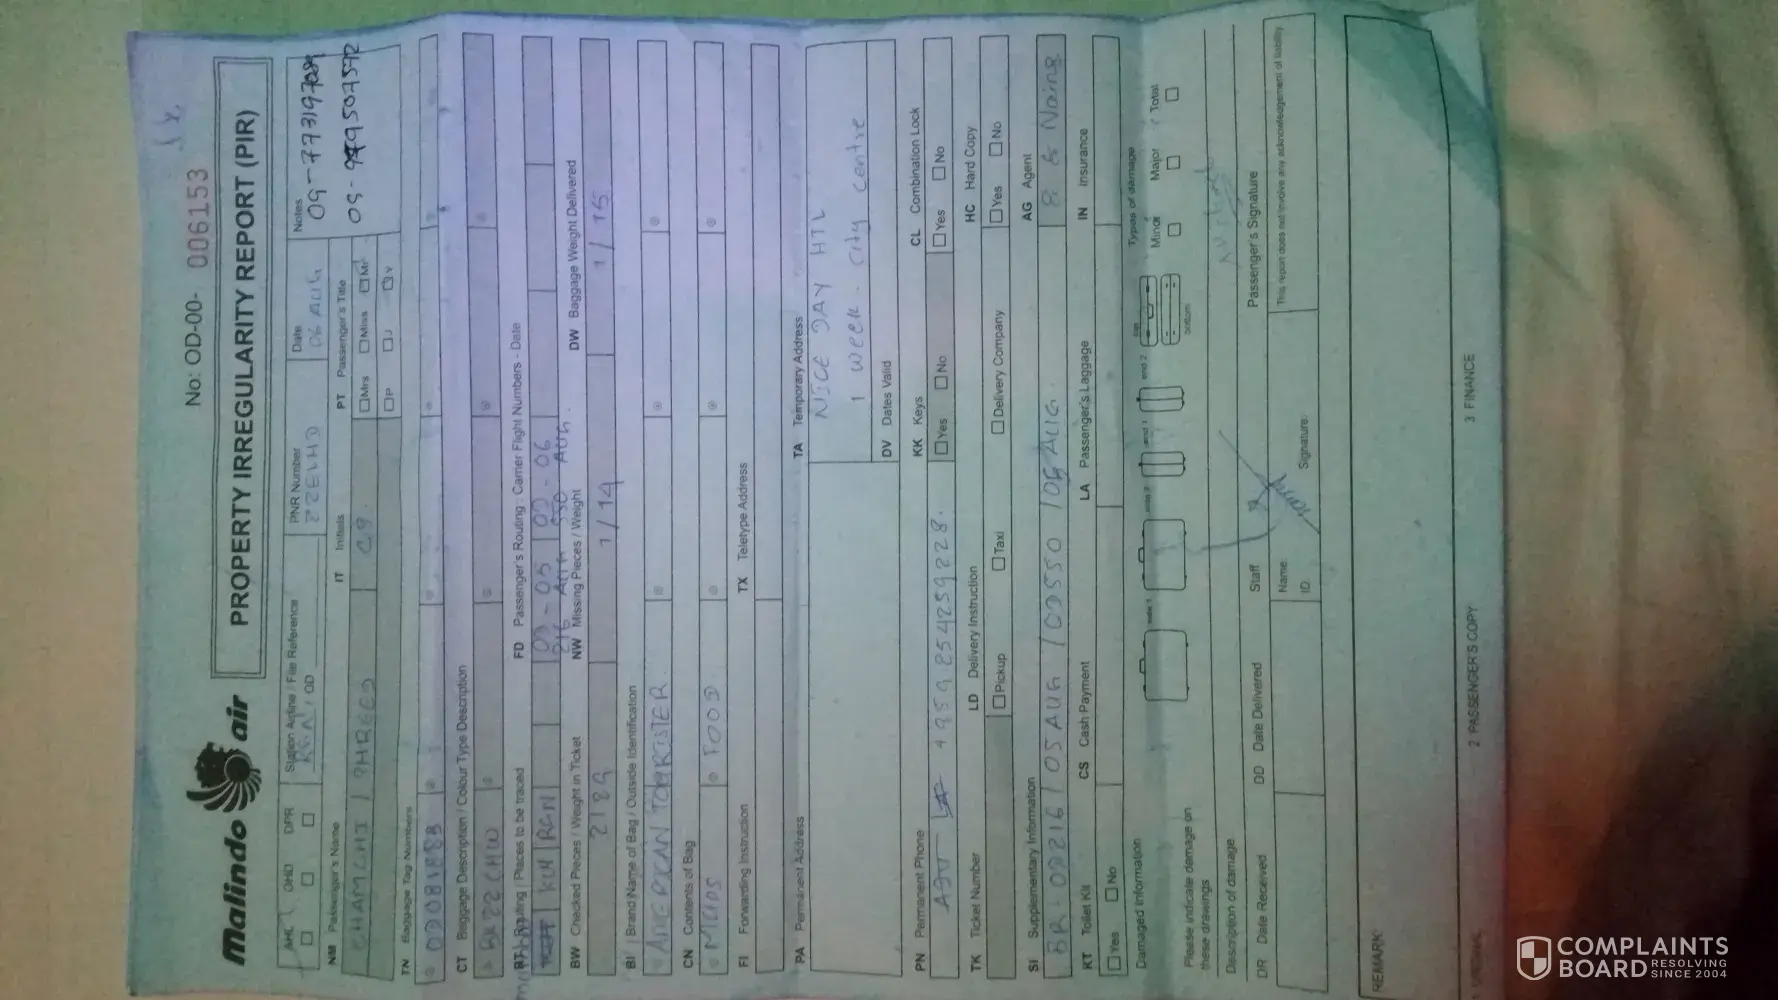 No: OD-00- 006153
Malindo air
PROPERTY IRREGULARITY REPORT (PIR)
AHL OHD DPR
Station Airline / File Reference
OD
PNR Number
Date
06 AUG
Notes
09-773197089
NM Passenger's Name
IT Initials
PT Passenger's Title
Mrs Miss Mr
P J Y
TN Baggage Tag Numbers
CT Baggage Description / Colour Type Description
RT Routing / Places to be traced
FD Passenger's Routing: Carrier Flight Numbers - Date
KUL RGN
OD - 05 OD - 06
216 AUG 550 - AUG.
BW Checked Pieces / Weight in Ticket
NW Missing Pieces / Weight
DW Baggage Weight Delivered
1/14
1/15
BI Brand Name of Bag / Outside Identification
AMERICAN TOURISTER
CN Contents of Bag
FOOD
FI Forwarding Instruction
TX Teletype Address
PA Permanent Address
TA Temporary Address
NICE DAY HTL
1 week. city centre
DV Dates Valid
PN Permanent Phone
+9592542592228.
KK Keys
Yes No
CL Combination Lock
Yes No
TK Ticket Number
LD Delivery Instruction
Pickup Taxi Delivery Company
HC Hard Copy
Yes No
SI Supplementary Information
AG Agent
BR- OD216 / 05 AUG / OD550 / 06 AUG.
Naing
KT Toilet Kit
Yes No
CS Cash Payment
LA Passenger's Laggage
IN Insurance
Damaged Information
Types of damage
side 1 side 2 end 1 end 2 top
bottom
Minor Major Total
Please indicate damage on
these drawings
Description of damage
DR Date Received
DD Date Delivered
Staff
Name
ID
Signature
Passenger's Signature
This report does not involve any acknowledgement of liability
REMARK:
2 PASSENGER'S COPY
3 FINANCE
COMPLAINTS
BOARD RESOLVING
SINCE 2004